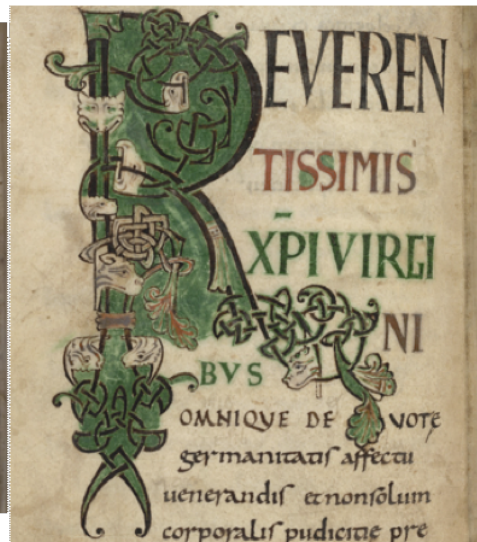 REVEREN
TISSIMIS
XP̄I VIRGI
NI
BVS
OMNIQVE DE VOTE
germanitatis affectu
uenerandis et non solum
corporalis pudicitię pre